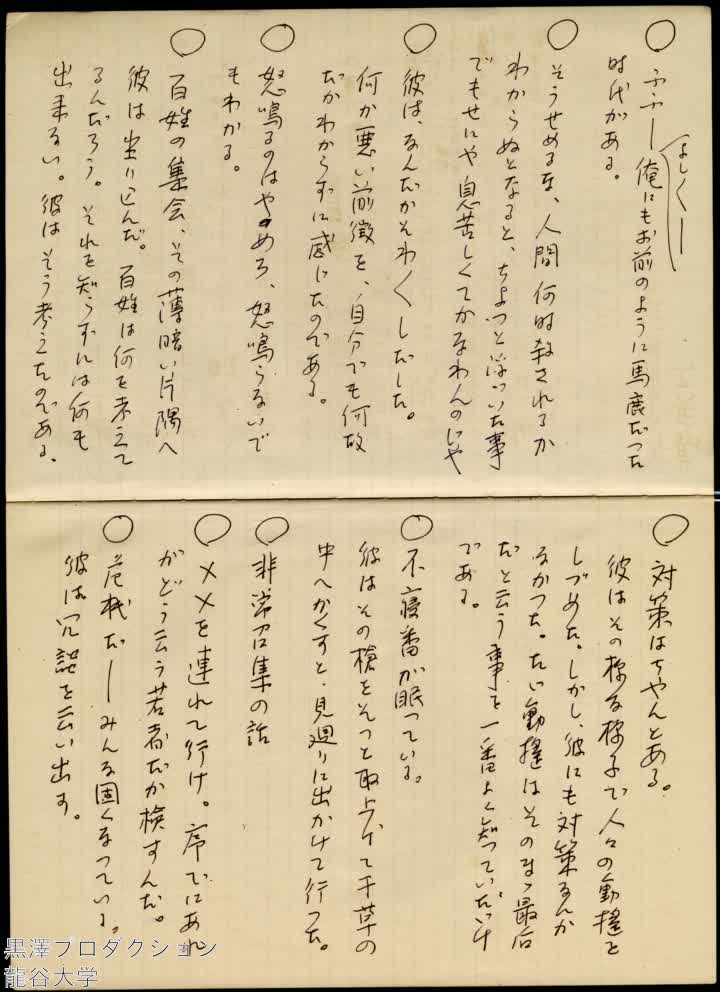 ふふー俺にもお前のように馬鹿だった
よしよしー
時代がある。
そうせめるな、人間何時殺されるか
わからぬとなると、ちょっと浮いた事
でもせにや息苦しくてかなわんのじや
彼は、なんだかそわ〱しだした。
何か悪い前徴を、自分でも何故
だかわからずに感じたのである。
怒鳴るのはやめろ、怒鳴らないで
もわかる。
百姓の集会、その薄暗い片隅へ
彼は坐り込んだ。百姓は何を考えて
るんだろう。それを知らずには何も
出来ない。彼はそう考えたのである、
対策はちやんとある。
彼はその様な様子で人々の動揺を
しづめた。しかし、彼にも対策なんか
なかつた。たゞ動揺はそのまゝ最后
だと云う事を一番よく知っていただけ
である。
不寝番が眠っている。
彼はその槍をそっと取上げて干草の
中へかくすと、見廻りに出かけて行った。
非常召集の話
××を連れて行け。序でにあれ
がどう云う若者だか検すんだ。
危機だーみんな固くなっている。
彼は冗談を云い出す。
黒澤プロダクション
龍谷大学